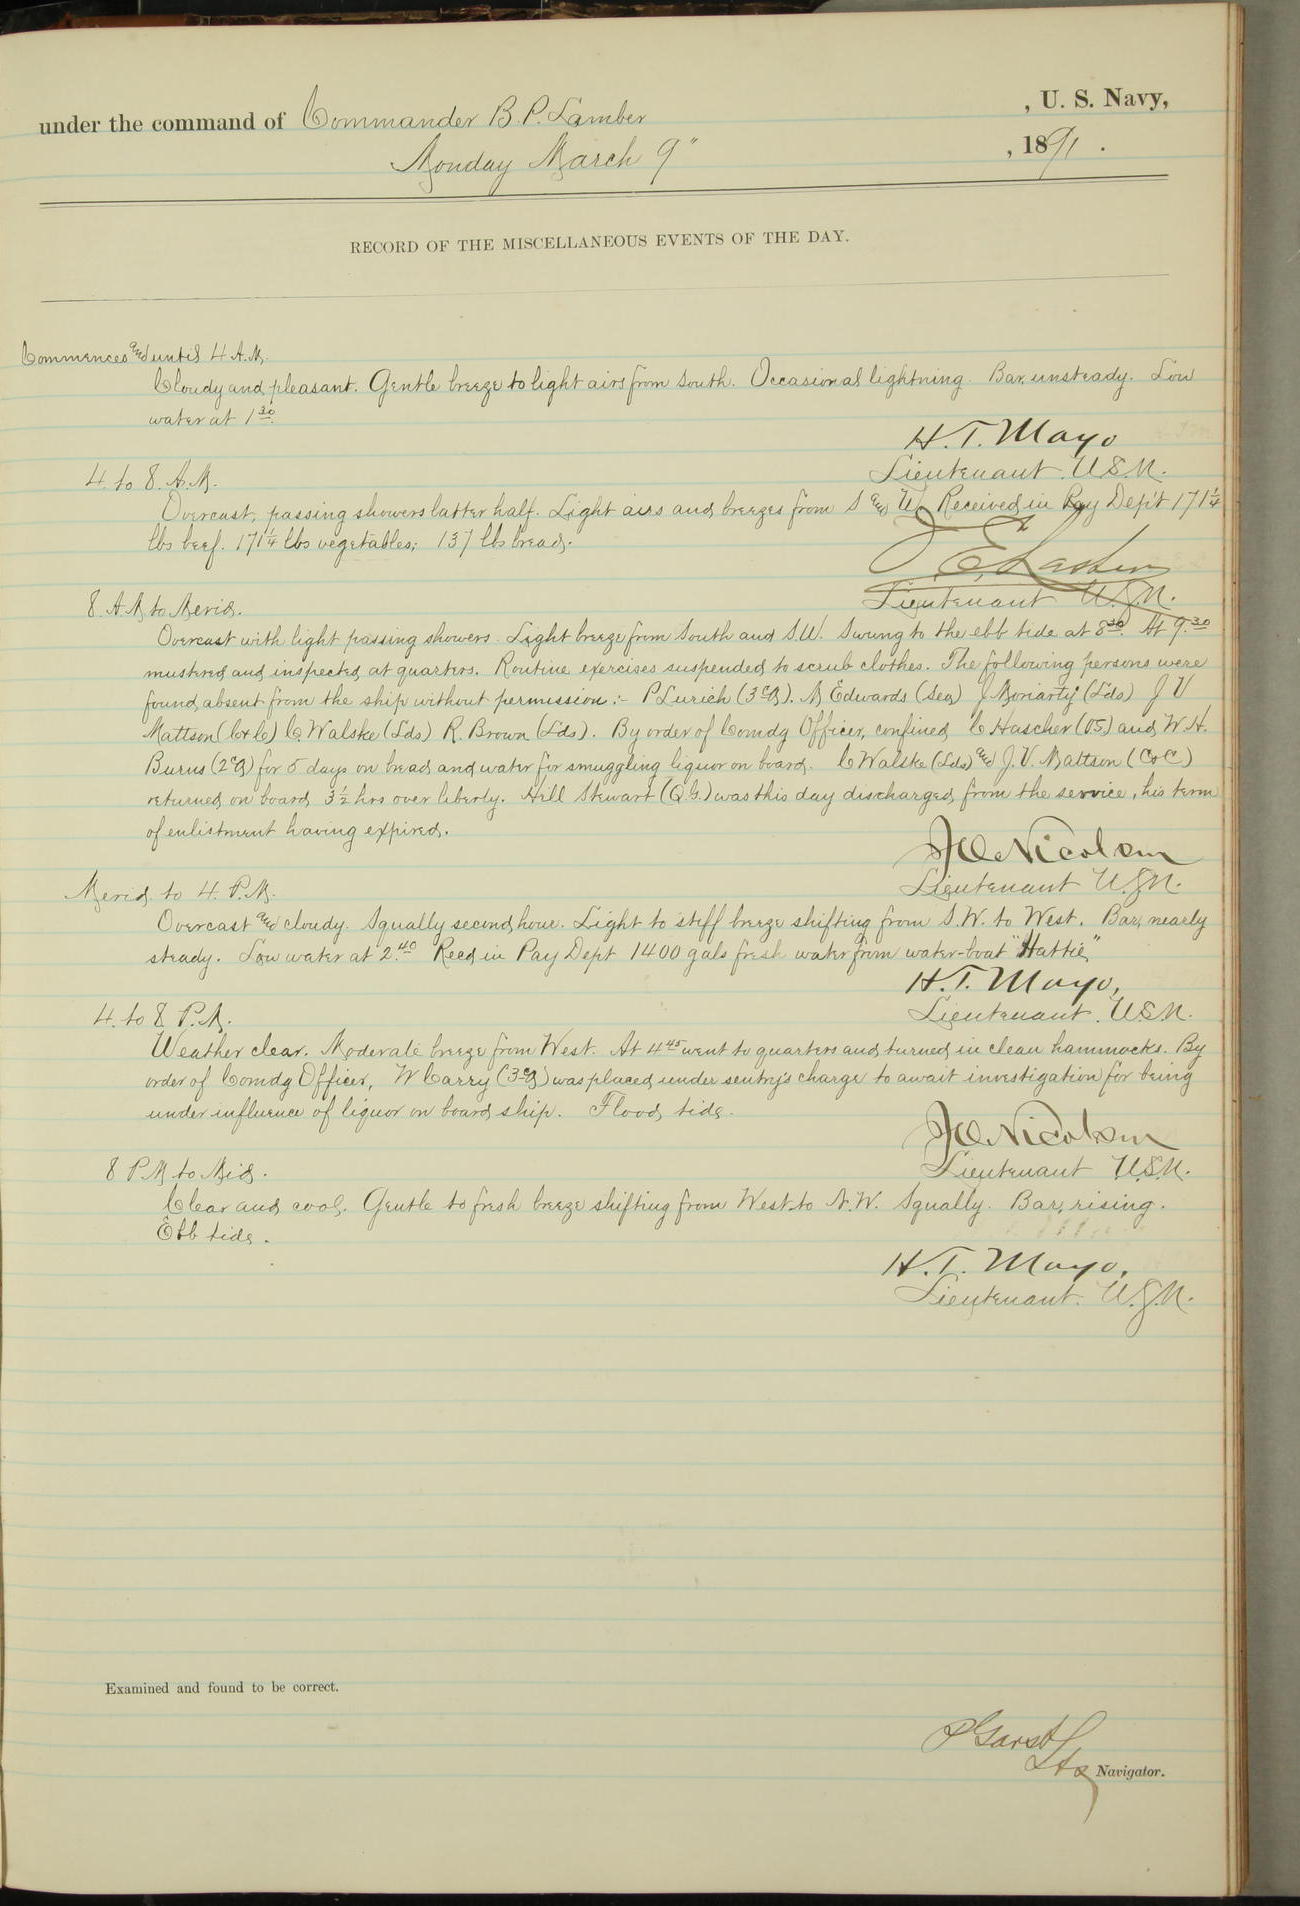 under the command of Commander B. P. Lamber , U. S. Navy,
Monday March 9" , 1891 .
RECORD OF THE MISCELLANEOUS EVENTS OF THE DAY.
Commences and until 4 A.M.
Cloudy and pleasant. Gentle breeze to light airs from South. Occasional lightning. Bar. unsteady. Low
water at 1 30.
H. T. Mayo
Lieutenant. U.S.N.
4 to 8. A.M.
Overcast, passing showers latter half. Light airs and breezes from S and W. Received in Pay Dep't 171 1/4
lbs beef. 171 1/4 lbs vegetables; 137 lbs bread.
Lieutenant U.S.N.
8. A.M to Merid.
Overcast with light passing showers. Light breeze from South and S.W. Swung to the ebb tide at 8 30. At 9. 30
mustered and inspected at quarters. Routine exercises suspended to scrub clothes. The following persons were
found absent from the ship without permission:- P Lurich (3cg). M Edwards (Sea) J Moriarty (Lds) J V
Mattson (C&C) C. Walske (Lds) R. Brown (Lds). By order of Comdg Officer, confined C Hascher (OS) and W.H.
Burns (2cg) for 5 days on bread and water for smuggling liquor on board. C Walske (Lds) and J. V. Mattson (C&C)
returned on board 3 1/2 hrs over liberty. Hill Stewart (Q.G.) was this day discharged from the service, his term
of enlistment having expired.
J O Nicolson
Lieutenant U.S.N.
Merid. to 4. P.M.
Overcast and cloudy. Squally second hour. Light to stiff breeze shifting from S.W. to West. Bar. nearly
steady. Low water at 2. 40 Recd in Pay Dept 1400 gals fresh water from water-boat "Hattie"
H. T. Mayo,
Lieutenant. U.S.N.
4. to 8 P.M.
Weather clear. Moderate breeze from West. At 4 45 went to quarters and turned in clean hammocks. By
order of Comdg Officer, W Carry (3cg) was placed under sentry's charge to await investigation for being
under influence of liquor on board ship. Flood tide.
J O Nicolson
Lieutenant U.S.N.
8 P.M to Mid.
Clear and cool. Gentle to fresh breeze shifting from West to N.W. Squally. Bar. rising.
Ebb tide.
H. T. Mayo,
Lieutenant. U.S.N.
Examined and found to be correct.
P Garst
Lt & Navigator.